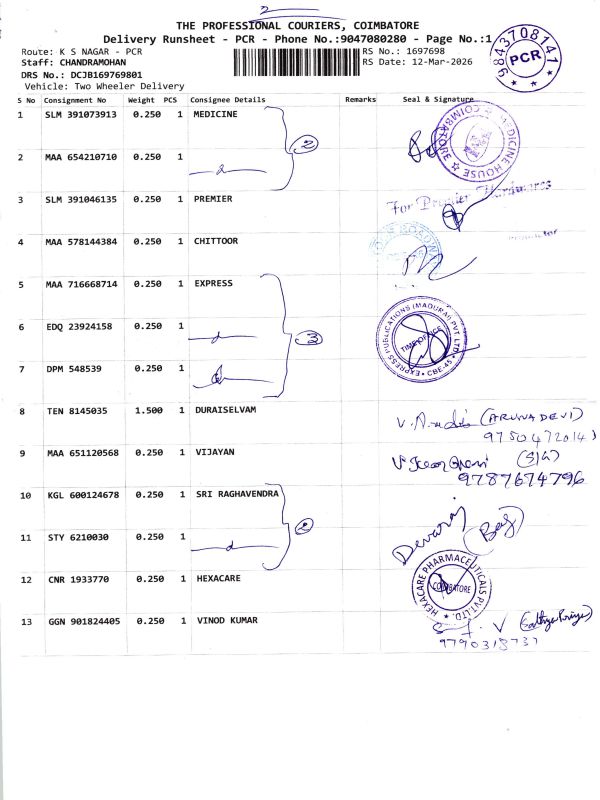 2
THE PROFESSIONAL COURIERS, COIMBATORE
Delivery Runsheet - PCR - Phone No.:9047080280 - Page No.:1
Route: K S NAGAR - PCR RS No.: 1697698
Staff: CHANDRAMOHAN RS Date: 12-Mar-2026
DRS No.: DCJB169769801
Vehicle: Two Wheeler Delivery
9843708141
PCR
S No Consignment No Weight PCS Consignee Details Remarks Seal & Signature
1 SLM 391073913 0.250 1 MEDICINE
MEDICINE HOUSE COIMBATORE
2
2 MAA 654210710 0.250 1
3 SLM 391046135 0.250 1 PREMIER
For Premier Hardwares
4 MAA 578144384 0.250 1 CHITTOOR
5 MAA 716668714 0.250 1 EXPRESS
EXPRESS PUBLICATIONS (MADURAI) PVT LTD. CBE-45
TIME OFFICE
6 EDQ 23924158 0.250 1
3
7 DPM 548539 0.250 1
8 TEN 8145035 1.500 1 DURAISELVAM
(ARUNA DEVI)
9750472014)
9 MAA 651120568 0.250 1 VIJAYAN
9787674796
10 KGL 600124678 0.250 1 SRI RAGHAVENDRA
2
Devaraj
11 STY 6210030 0.250 1
12 CNR 1933770 0.250 1 HEXACARE
HEXACARE PHARMACEUTICALS PVT LTD.
COIMBATORE
13 GGN 901824405 0.250 1 VINOD KUMAR
9790318737